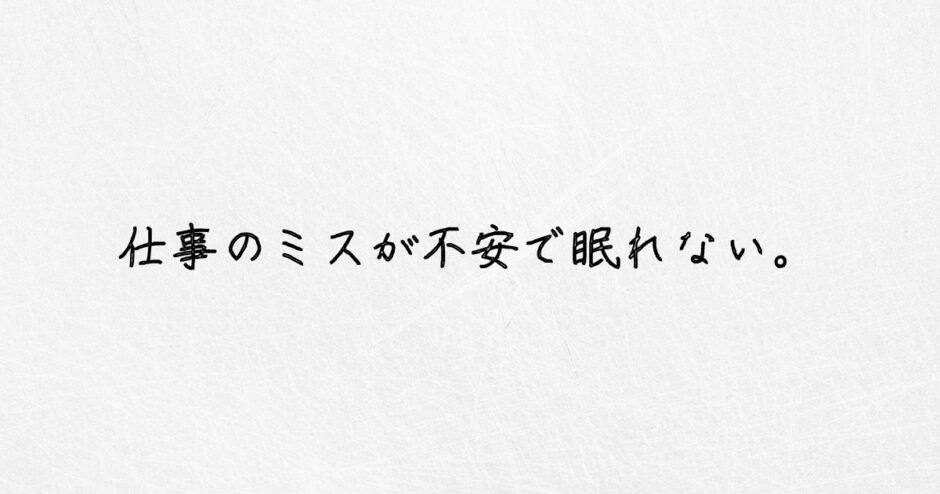 仕事のミスが不安で眠れない。